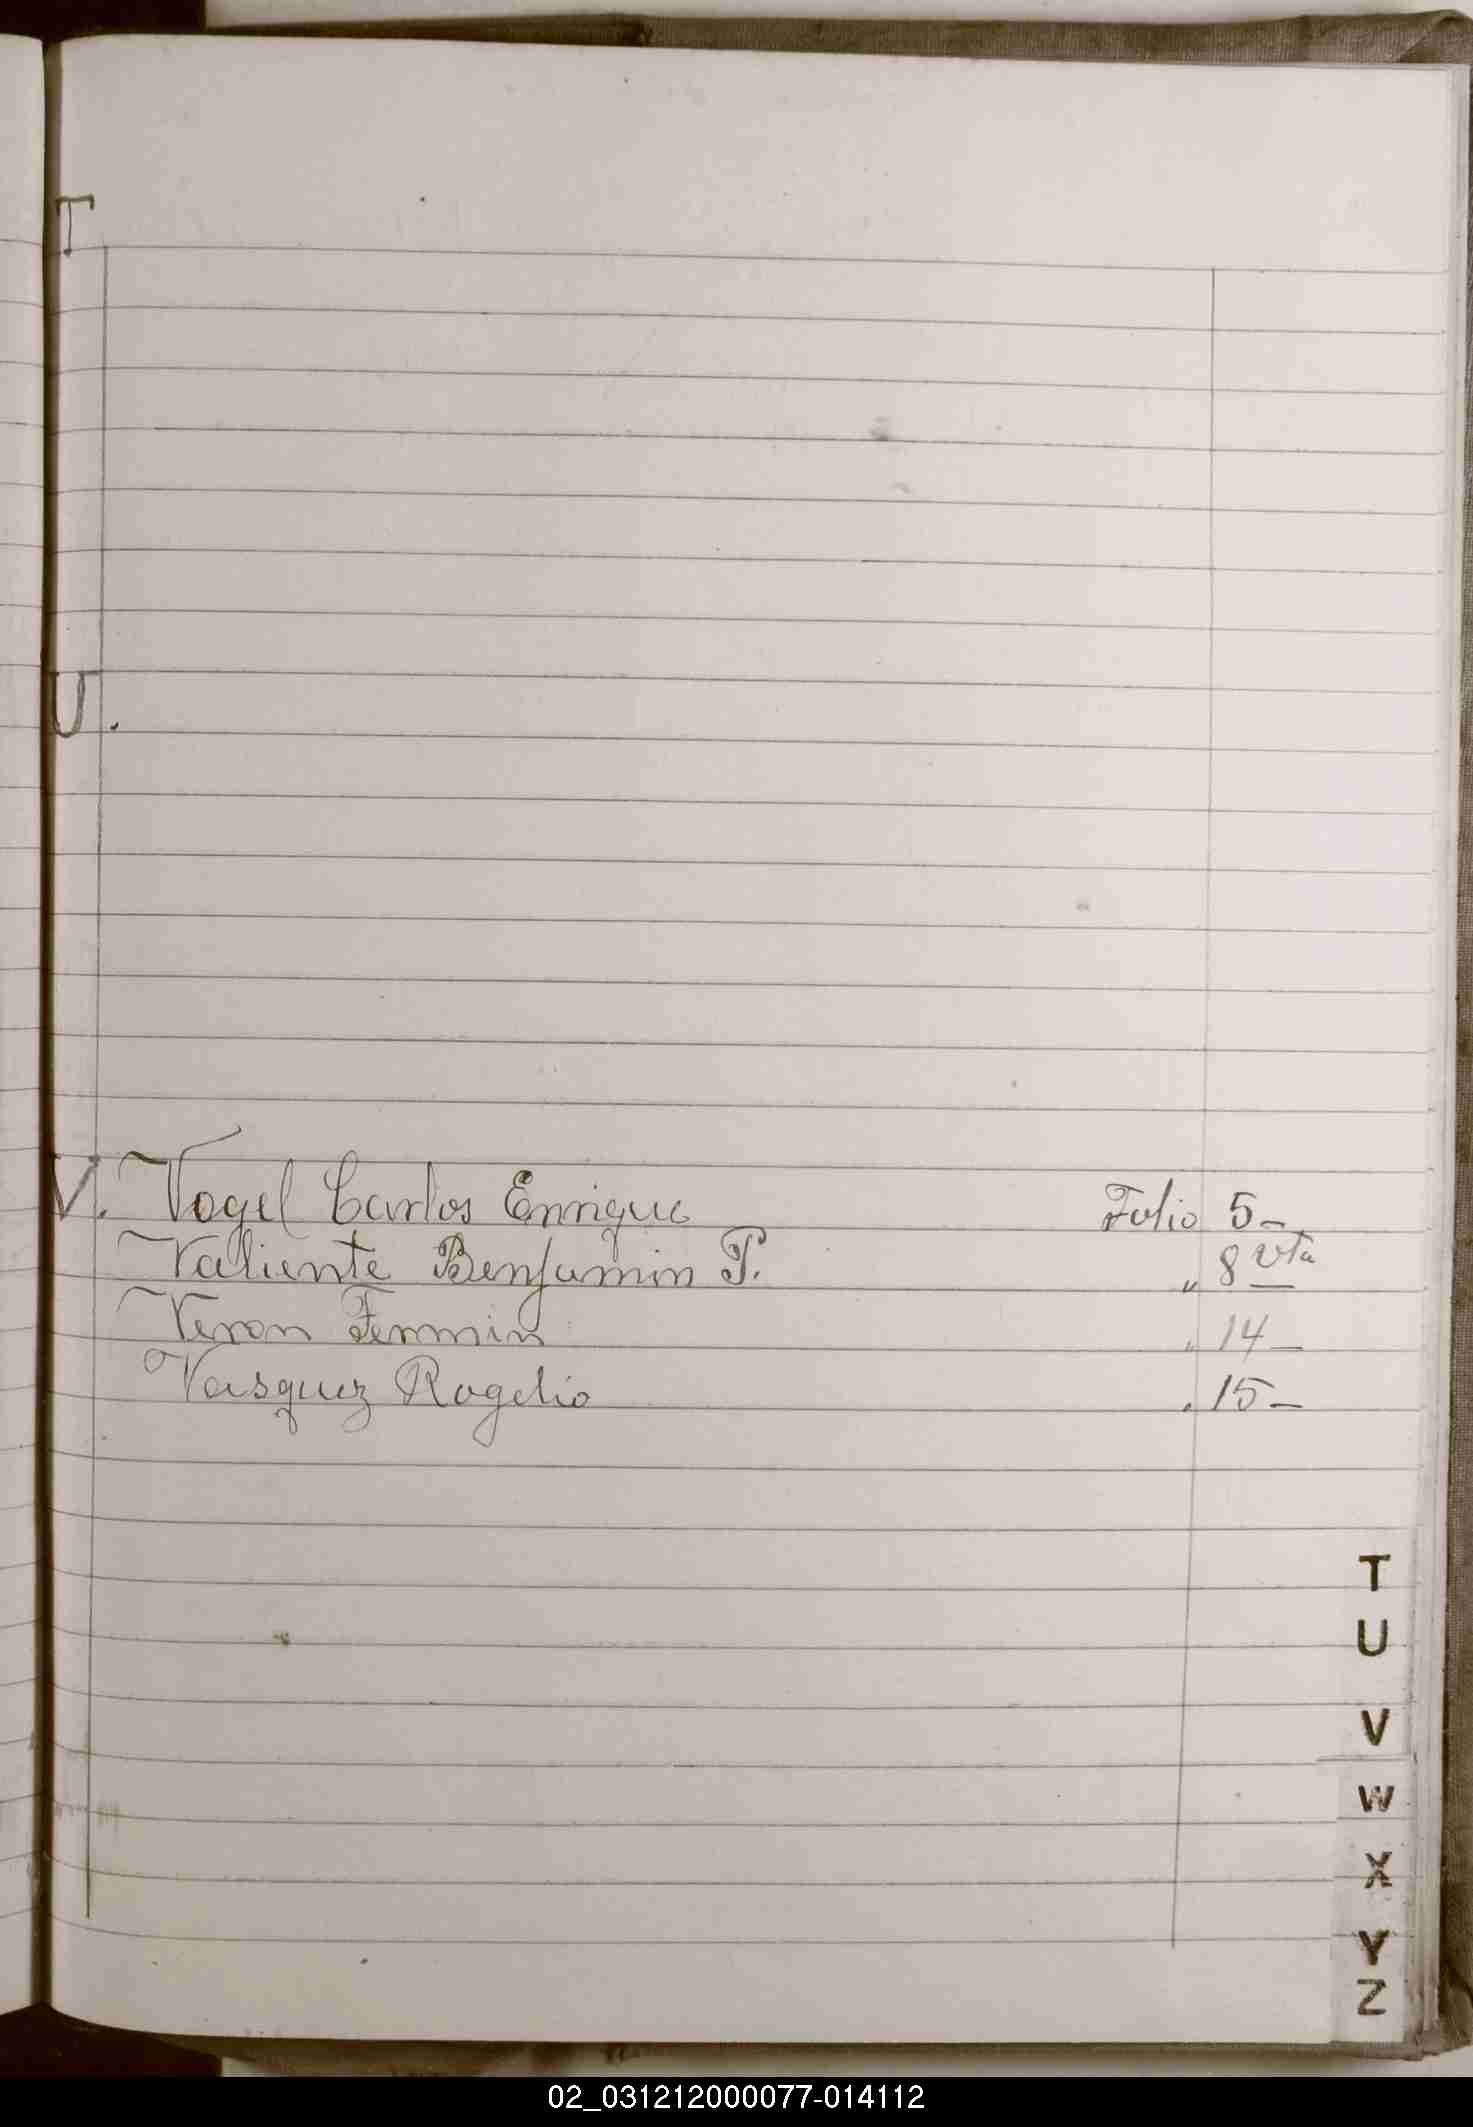 T
U.
V. Vogel Carlos Enrique Folio 5-
Valiente Benjamin P. " 8 vta
Veron Fermin " 14-
Vasquez Rogelio " 15-
T
U
V
W
X
Y
Z
02_031212000077-014112